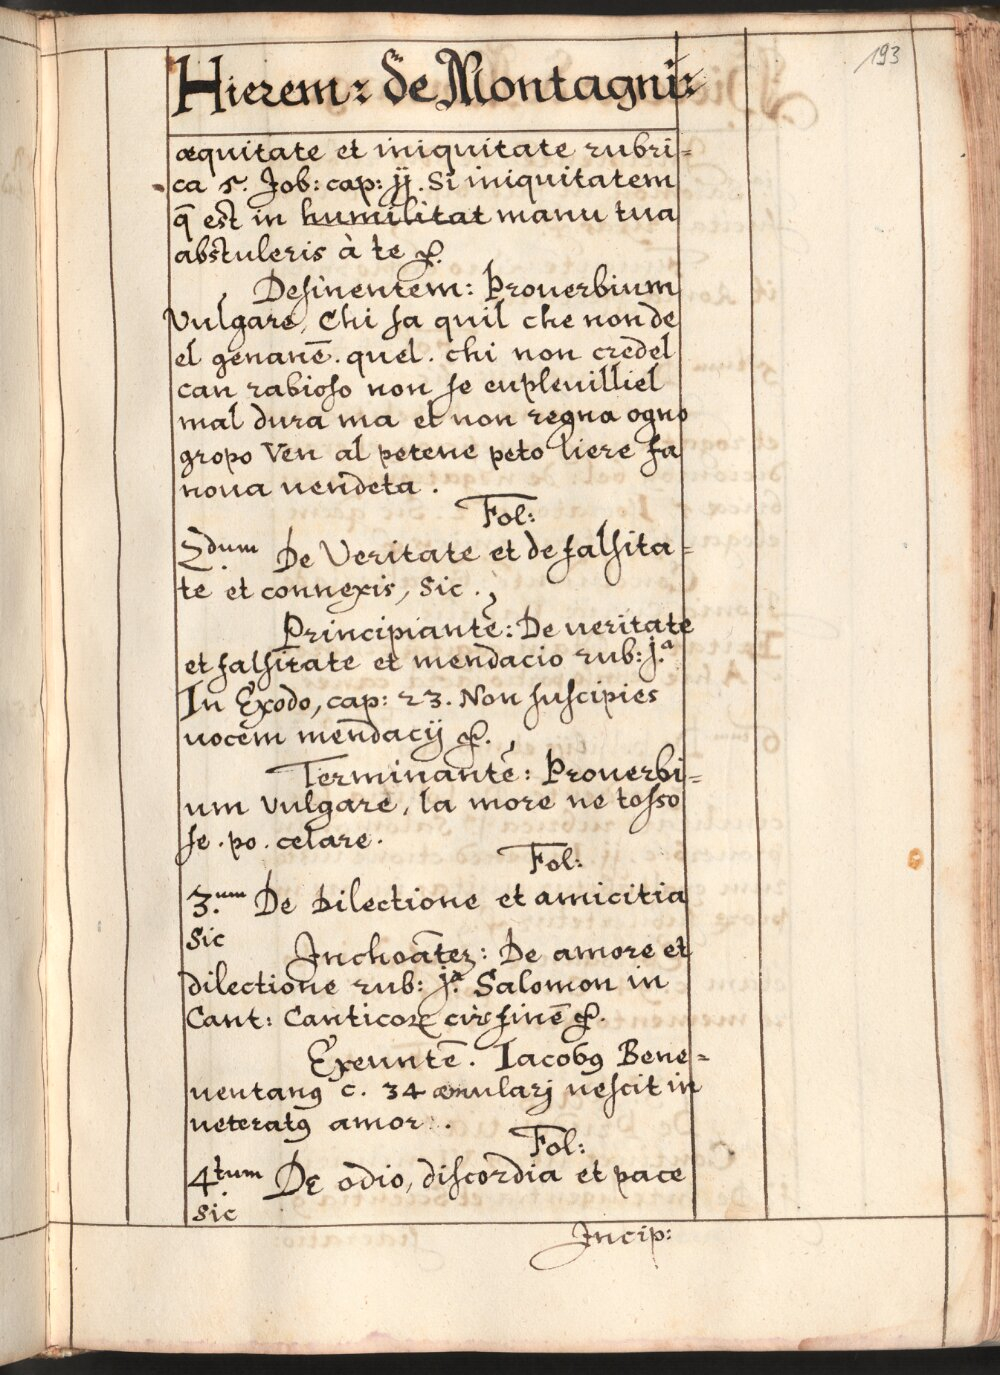 193
Hierem: de Montagni:
æquitate et iniquitate rubri=
ca 5. Job: cap: ij. Si iniquitatem
q̄ est in humilitat manu tua
abstuleris à te &.
Desinentem: Prouerbium
Vulgare, Chi fa quil che non de
el genanē. quel. chi non credel
can rabioso non se enplenilliel
mal dura ma et non regna ogno
gropo Ven al petene peto liere fa
noua uendeta.
Fol:
2dum De Veritate et de falsita=
te et connexis, Sic.
Principiantē: De ueritate
et falsitate et mendacio rub: j.a
In Exodo, cap: 23. Non suscipies
uocem mendacij &.
Terminantē: Prouerbi=
um Vulgare, la more ne tosso
se. po. celare.
Fol:
3.um De Dilectione et amicitia
Sic
Inchoātez: De amore et
dilectione rub: j.a Salomon in
Cant: Canticoꝝ cir finē &.
Exeuntē. Iacobꝰ Bene=
uentanꝰ c. 34 æmularj nescit in
ueteratꝰ amor.
Fol:
4tum De odio, discordia et pace
Sic
Incip: